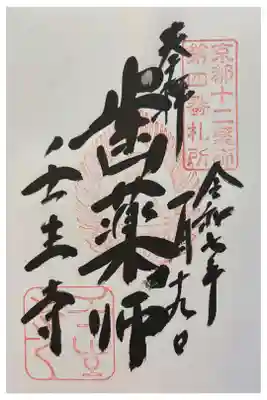 京都十二薬師
第四番札所
令和七年
月十九日
奉拝
歯薬師
壬生寺